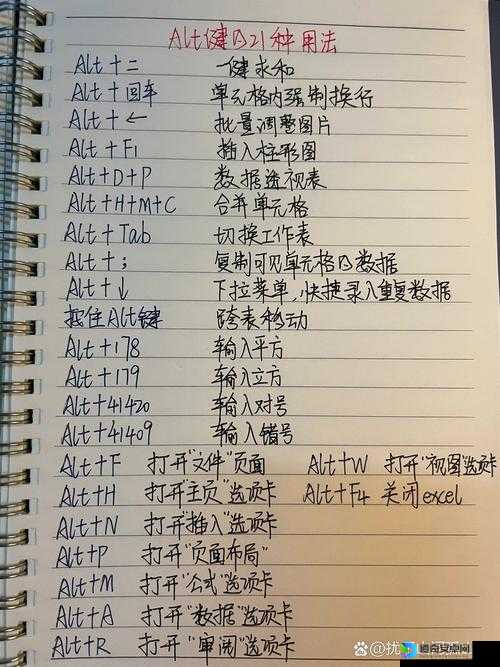 Alt键的21种用法
Alt+= 一键求和
Alt+回车 单元格内强制换行
Alt+← 批量调整图片
Alt+F1 插入柱形图
Alt+D+P 数据透视表
Alt+H+M+C 合并单元格
Alt+Tab 切换工作表
Alt+; 复制可见单元格的数据
Alt+↓ 下拉菜单,快捷录入重复数据
按住Alt键 跨表移动
Alt+178 输入平方
Alt+179 输入立方
Alt+41420 输入对号
Alt+41409 输入错号
Alt+F 打开"文件"页面 Alt+W 打开"视图"选项卡
Alt+H 打开"主页"选项卡 Alt+F4 关闭excel
Alt+N 打开"插入"选项卡
Alt+P 打开"页面布局"
Alt+M 打开"公式"选项卡
Alt+A 打开"数据"选项卡
Alt+R 打开"审阅"选项卡
知乎 @犹